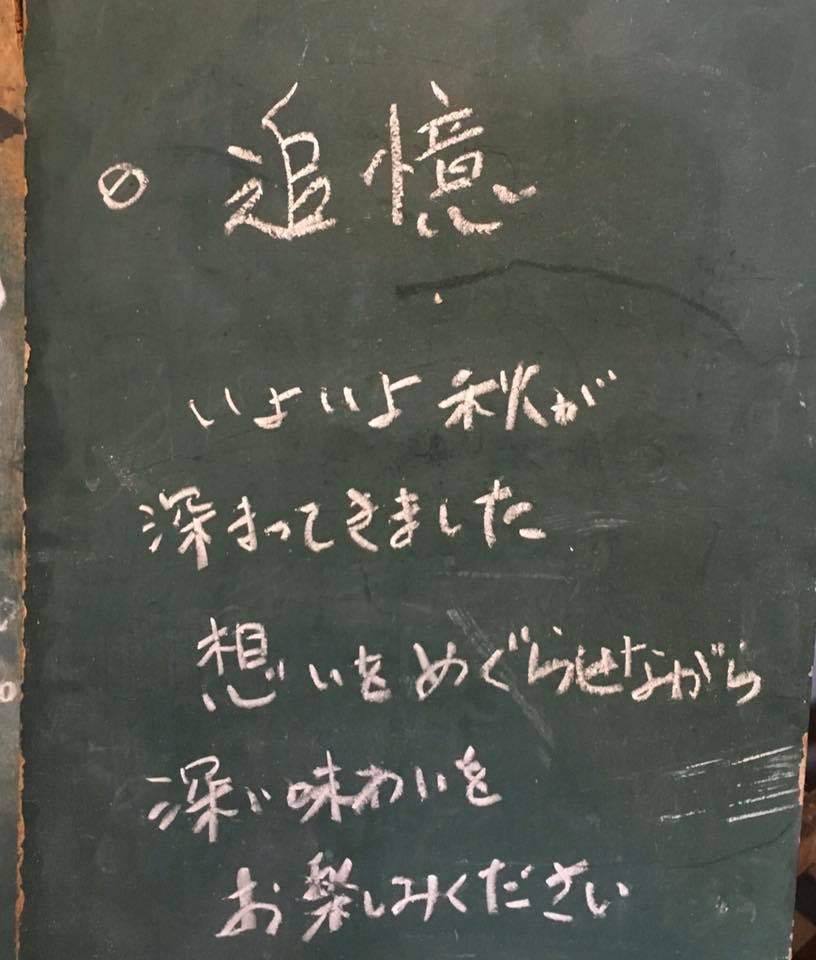 追憶
いよいよ秋が
深まってきました
想いをめぐらせながら
深い味わいを
お楽しみください